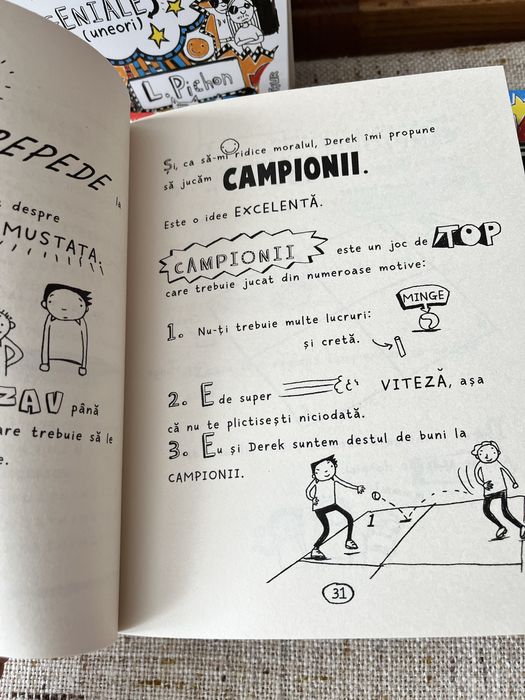 GENIALE
(uneori)
L. Pichon
REPEDE la
despre
MUSTAȚA.
ZAV până
are trebuie să le
e.
Și, ca să-mi ridice moralul, Derek îmi propune
să jucăm CAMPIONII.
Este o idee EXCELENTĂ.
CAMPIONII este un joc de TOP
care trebuie jucat din numeroase motive:
MINGE
1. Nu-ți trebuie multe lucruri:
și cretă.
2. E de super VITEZĂ, așa
că nu te plictisești niciodată.
3. Eu și Derek suntem destul de buni la
CAMPIONII.
1
31